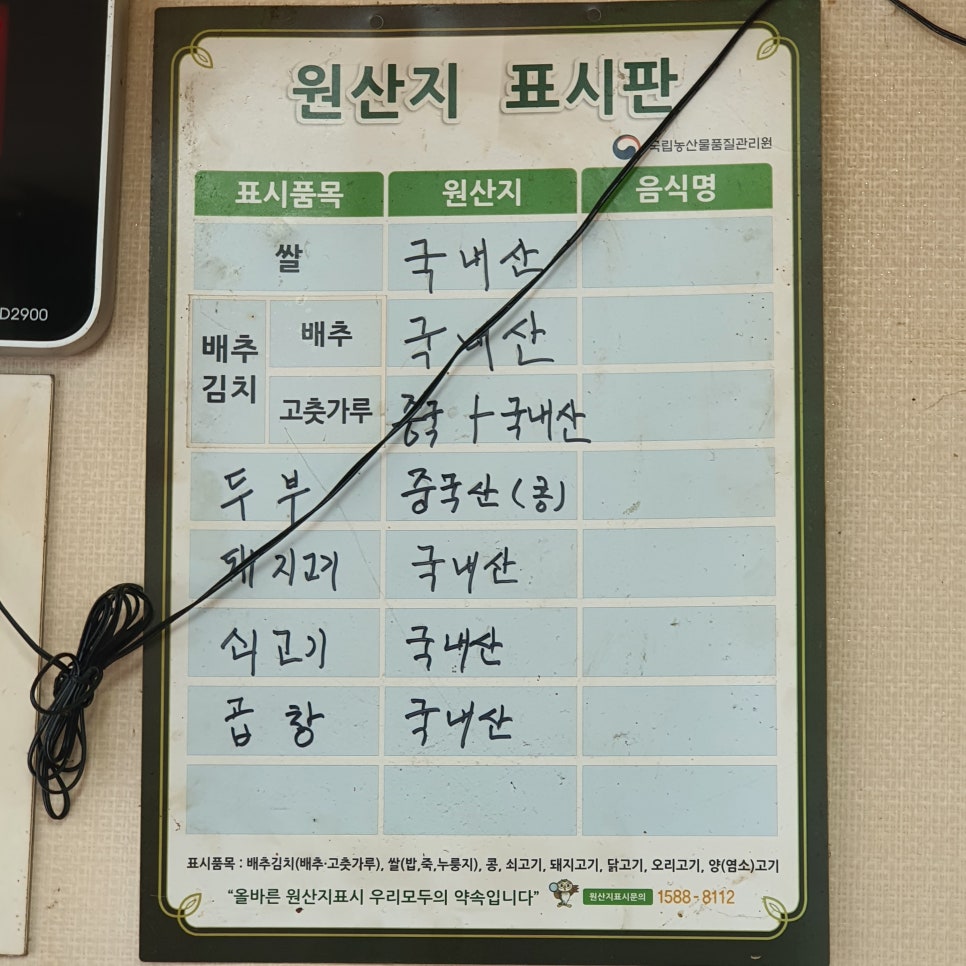 원산지 표시판
국립농산물품질관리원
표시품목 원산지 음식명
쌀 국내산
배추김치 배추 국내산
고춧가루 중국 + 국내산
두부 중국산(콩)
돼지고기 국내산
쇠고기 국내산
곱창 국내산
표시품목 : 배추김치(배추·고춧가루), 쌀(밥,죽,누룽지), 콩, 쇠고기, 돼지고기, 닭고기, 오리고기, 양(염소)고기
“올바른 원산지표시 우리모두의 약속입니다” 원산지표시문의 1588-8112
D2900